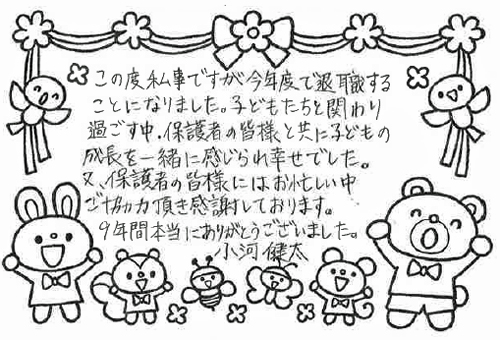 この度私事ですが今年度で退職する
ことになりました。子どもたちと関わり
過ごす中、保護者の皆様と共に子どもの
成長を一緒に感じられ幸せでした。
又、保護者の皆様にはお忙しい中
ご協力頂き感謝しております。
9年間本当にありがとうございました。
小河健太